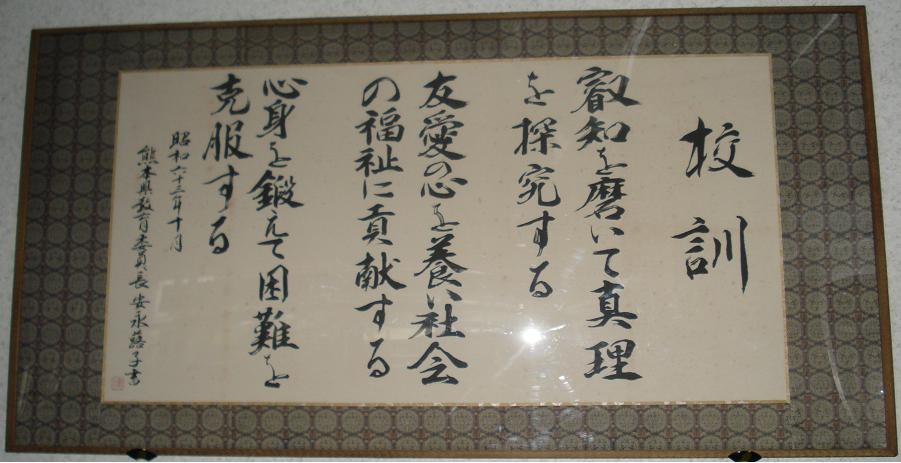 校訓
叡知を磨いて真理
を探究する
友愛の心を養い社会
の福祉に貢献する
心身を鍛えて困難を
克服する
昭和六十三年十月
熊本県教育委員長 安永蕗子書